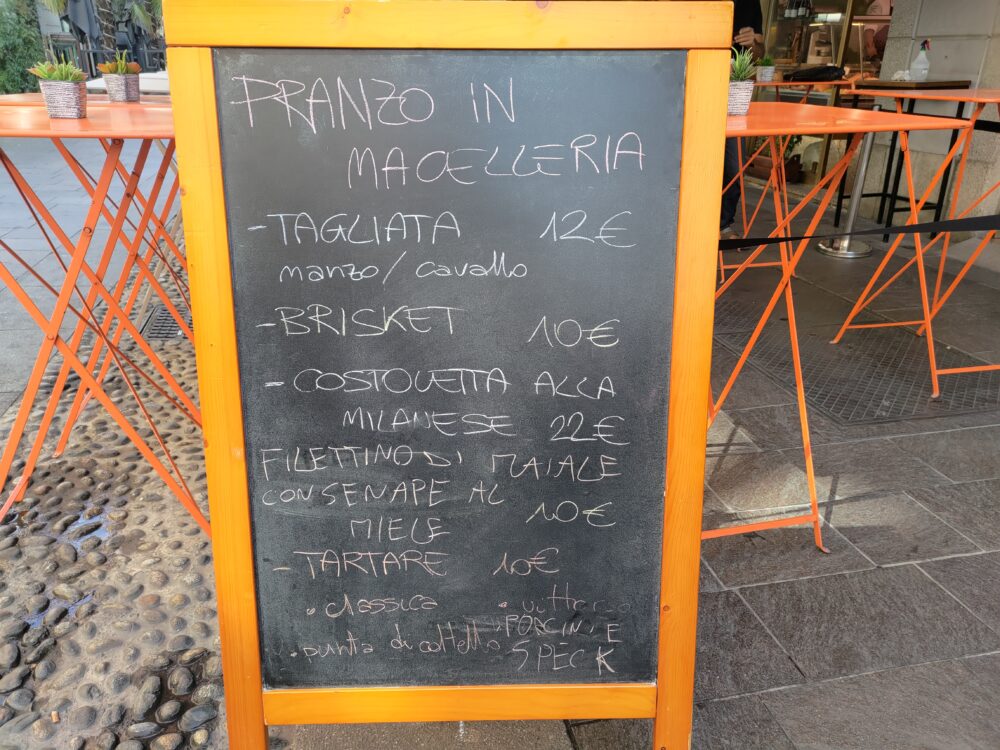 PRANZO IN
MACELLERIA
- TAGLIATA 12€
manzo/cavallo
- BRISKET 10€
- COSTOLETTA ALLA
MILANESE 22€
FILETTINO DI MAIALE
CON SENAPE AL 10€
MIELE
- TARTARE 10€
• classica •
• punta di coltello PORCINI E
SPECK